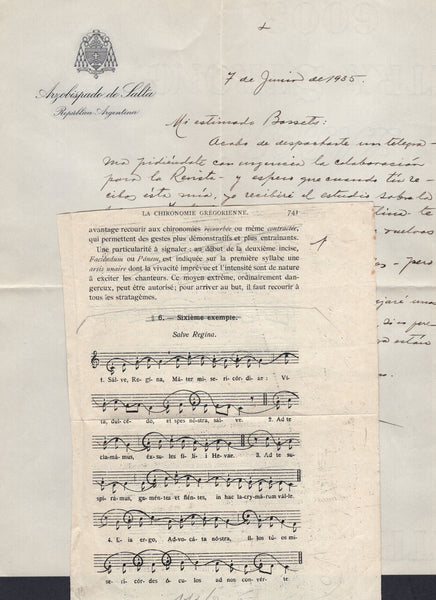 +
Arzobispado de Salta
República Argentina
7 de Junio de 1935.
Mi estimado Bossets:
Acabo de despacharte un telegra-
ma pidiéndote con urgencia la colaboración
para la Revista - y espero que cuando tú re-
cibas ésta mía, ya recibiré el estudio sobre la
LA CHIRONOMIE GRÉGORIENNE. 741
avantage recourir aux chironomies recourbée ou même contractée,
qui permettent des gestes plus démonstratifs et plus entrainants.
Une particularité à signaler : au début de la deuxième incise,
Faciéndum ou Pánem, est indiquée sur la première syllabe une
arsis unaire dont la vivacité imprévue et l'intensité sont de nature
à exciter les chanteurs. Ce moyen extrême, ordinairement dan-
gereux, peut être autorisé; pour arriver au but, il faut recourir à
tous les stratagèmes.
§ 6. — Sixième exemple.
Salve Regína.
1. Sál- ve, Re- gí- na, Má- ter mi- se- ri- cór- di- æ : Ví-
ta, dul- cé- do, et spes nó- stra, sál- ve. 2. Ad te
cla- má- mus, éx- su- les fí- li- i He- vae. 3. Ad te su-
spi- rá- mus, ge- mén- tes et flén- tes, in hac la- cry- má- rum vál- le.
4. E- ia er- go, Ad- vo- cá- ta nó- stra, íl- los tú- os mi-
se- ri- cór- des ó- cu- los ad nos con- vér- te